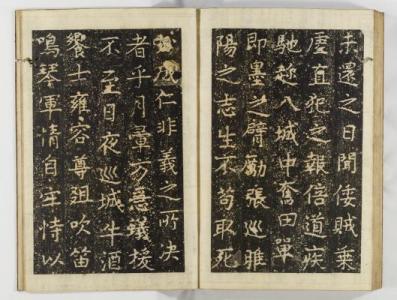 未還之日聞倭賊乗
虛直犯之報倍道疾
馳趍入城中奮田單
即墨之臂勵張巡睢
陽之志生不苟取死
成仁非義之所决
者乎月暈方急蟻援
不至日夜巡城牛酒
饗士雍容尊俎吹笛
鳴琴軍情自牢恃以